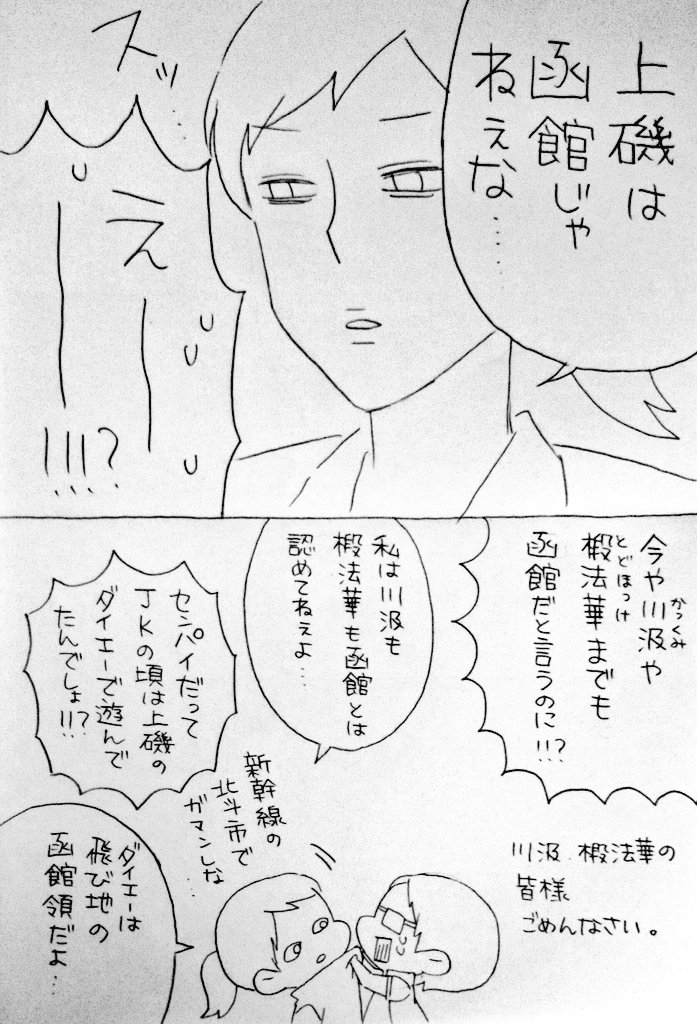 上磯は
函館じゃ
ねぇな……
スッ…
えーー!!!?
今や川汲や
かっくみ
椴法華までも
とどほっけ
函館だと言うのに!!!?
私は川汲も
椴法華も函館とは
認めてねぇよ…
センパイだって
JKの頃は上磯の
ダイエーで遊んで
たんでしょ!!!?
新幹線の
北斗市で
ガマンしな
…
川汲、椴法華の
皆様
ごめんなさい。
ダイエーは
飛び地の
函館領だよ…